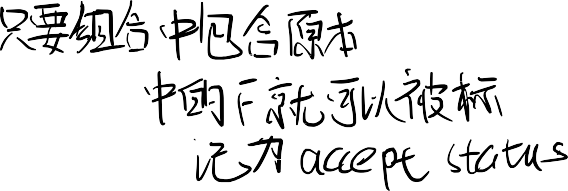 只要组合中包含原本
中的F就可以被标
记为 accept status